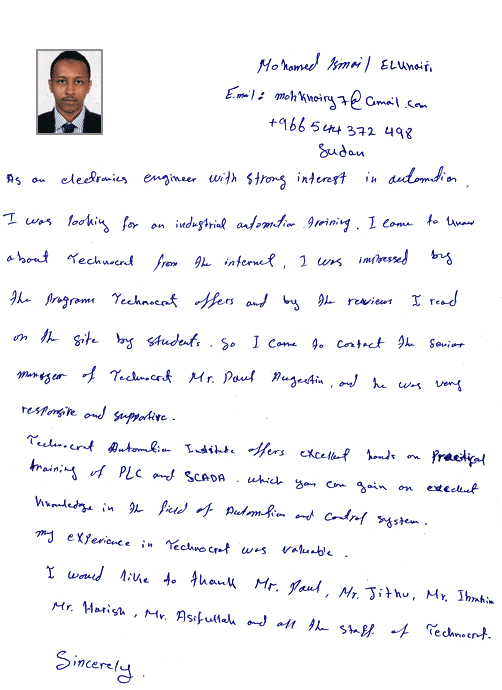 Mohamed Ismail ELUnairi
E.mail: mohkhairy7@Gmail.com
+966 544 372 498
Sudan
As an electronics engineer with strong interest in automation,
I was looking for an industrial automation training. I came to know
about Technocrat from the internet, I was impressed by
the Programs Technocrat offers and by the reviews I read
on the site by students. So I came to contact the senior
manager of Technocrat Mr. Paul Augestin, and he was very
responsive and supportive.
Technocrat Automation Institute offers excellent hands on Practical
training of PLC and SCADA. which you can gain an excellent
knowledge in the field of Automation and control system.
my experience in Technocrat was valuable.
I would like to thank Mr. Paul, Mr. Jithu, Mr. Ibrahim
Mr. Harish, Mr. Asifullah and all the staff of Technocrat.
Sincerely.